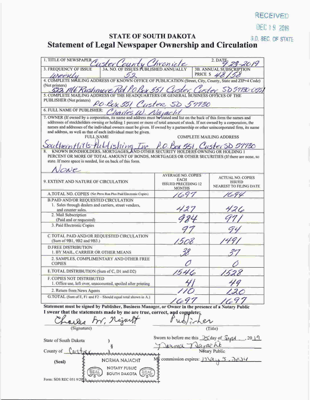 RECEIVED
DEC 19 2019
S.D. SEC. OF STATE
STATE OF SOUTH DAKOTA
Statement of Legal Newspaper Ownership and Circulation
1. TITLE OF NEWSPAPER Custer County Chronicle
2. DATE 9-28-2019
3. FREQUENCY OF ISSUE weekly
3A. NO. OF ISSUES PUBLISHED ANNUALLY 52
3B. ANNUAL SUBSCRIPTION PRICE $ 48.158
4. COMPLETE MAILING ADDRESS OF KNOWN OFFICE OF PUBLICATION (Street, City, County, State and ZIP+4 Code)
(Not printers) 522 Mt Rushmore Rd PO Box 551 Custer, Custer, SD 57730
5. COMPLETE MAILING ADDRESS OF THE HEADQUARTERS OR GENERAL BUSINESS OFFICES OF THE
PUBLISHER (Not printers) PO Box 551 Custer, SD 57730
6. FULL NAME OF PUBLISHER: Charles W. Najacht
7. OWNER (If owned by a corporation, its name and address must be stated and also
FULL NAME COMPLETE MAILING ADDRESS
Southern Hills Publishing Inc. P.O. Box 551, Custer SD 57730
8. KNOWN BONDHOLDERS, MORTGAGEES, AND OTHER SECURITY HOLDERS OWNING OR HOLDING 1
PERCENT OR MORE OF TOTAL AMOUNT OF BONDS, MORTGAGES OR OTHER SECURITIES (If there are none, so
state. If more space is needed, list on back of this form.
None
9. EXTENT AND NATURE OF CIRCULATION
AVERAGE NO. COPIES EACH ISSUES PRECEDING 12 MONTHS
ACTUAL NO. COPIES ISSUED NEAREST TO FILING DATE
A. TOTAL NO. COPIES 1697 1694
B. PAID AND/OR REQUESTED CIRCULATION
1. Sales through dealers and carriers, street vendors, and counter sales. 427 426
2. Mail Subscription (Paid and or requested) 984 971
3. Paid Electronic Copies 97 94
C. TOTAL PAID AND/OR REQUESTED CIRCULATION
(Sum of 9B1, 9B2 and 9B3) 1508 1491
D. FREE DISTRIBUTION
1. BY MAIL, CARRIER OR OTHER MEANS 38 37
2. SAMPLES, COMPLIMENTARY AND OTHER FREE COPIES 0 0
E. TOTAL DISTRIBUTION (Sum of C, D1 and D2) 1546 1528
F. COPIES NOT DISTRIBUTED
1. Office use, left over, unaccounted, spoiled after printing 41 49
2. Return from News Agents 110 120
G. TOTAL (Sum of E, F1 and F2 - Should equal total shown in A.) 1697 1697
Statement must be signed by Publisher, Business Manager, or Owner in the presence of a Notary Public
I swear that the statements made by me are true, correct, and complete:
Charles W. Najacht Publisher
(Signature) (Title)
State of South Dakota )
County of Custer )
Sworn to before me this 28 day of Sept, 2019
Norma Najacht
Notary Public
(Seal)
NORMA NAJACHT
NOTARY PUBLIC
SOUTH DAKOTA
My commission expires: